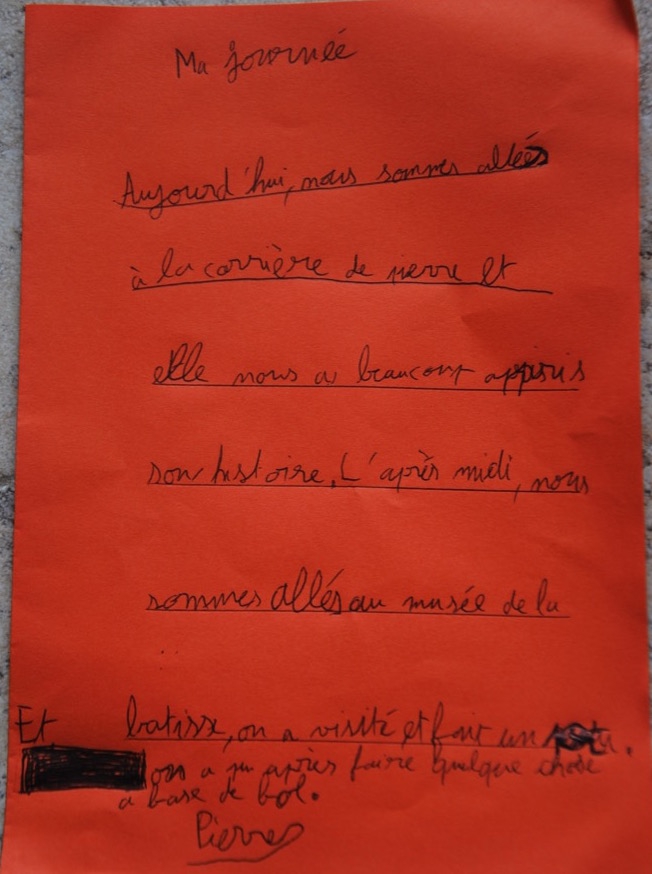 Ma journée
Aujourd'hui, nous sommes allés
à la carrière de pierre et
elle nous a beaucoup appris
son histoire, L'après midi, nous
sommes allés au musée de la
Et batisse, on a visité et fait un
on a pu après faire quelque chose
a base de bol.
Pierre